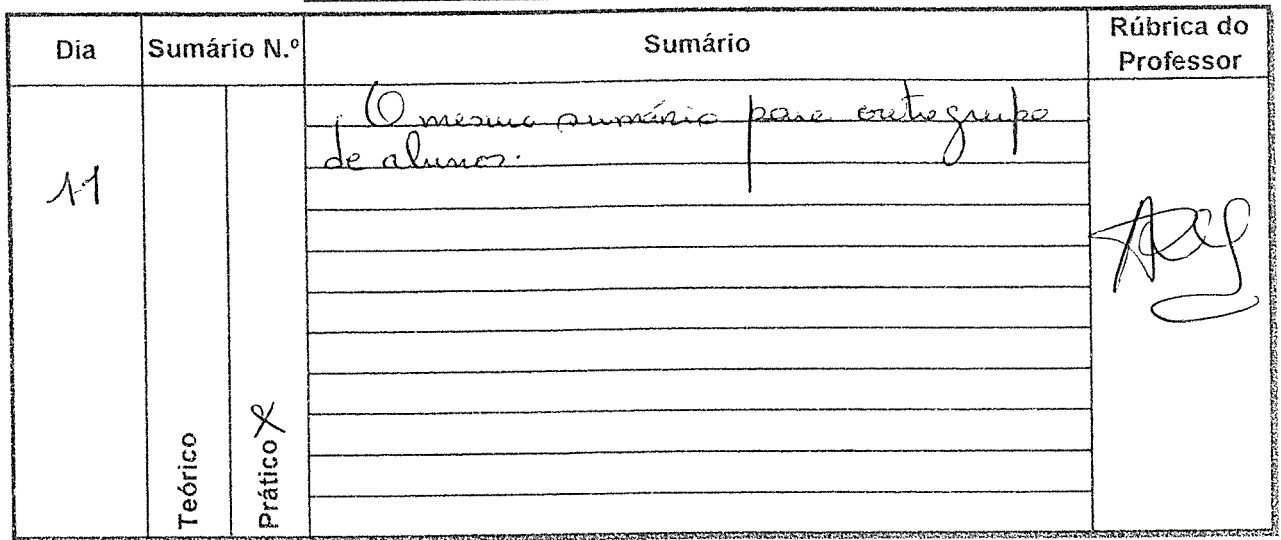 Dia Sumário N.º Sumário Rúbrica do Professor
11
Teórico
Prático X
O mesmo sumário para outro grupo
de alunos.